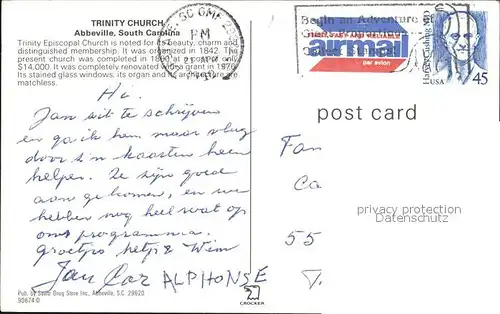 TRINITY CHURCH
Abbeville, South Carolina
Trinity Episcopal Church is noted for its beauty, charm and
distinguished membership. It was organized in 1842. The
present church was completed in 1860 at a cost of only
$14,000. It was completely renovated by a grant in 1970.
Its stained glass windows, its organ and its architecture are
matchless.
PM
Begin an Adventure
airmail
par avion
Harvey Cushing MD
USA 45
post card
Hi.
Jan wil te schrijven
en ga ik hem maar vlug
door z'n kaarten heen
helpen. Ze zijn goed
aan gekomen, en we
hebben nog heel wat op
ons programma.
groetjes Wim
Jan Cor ALPHONSE
Fam
Ca
55
privacy protection
Datenschutz
Pub. by Drug Store Inc., Abbeville, S.C. 29620
93674-D
CROCKER